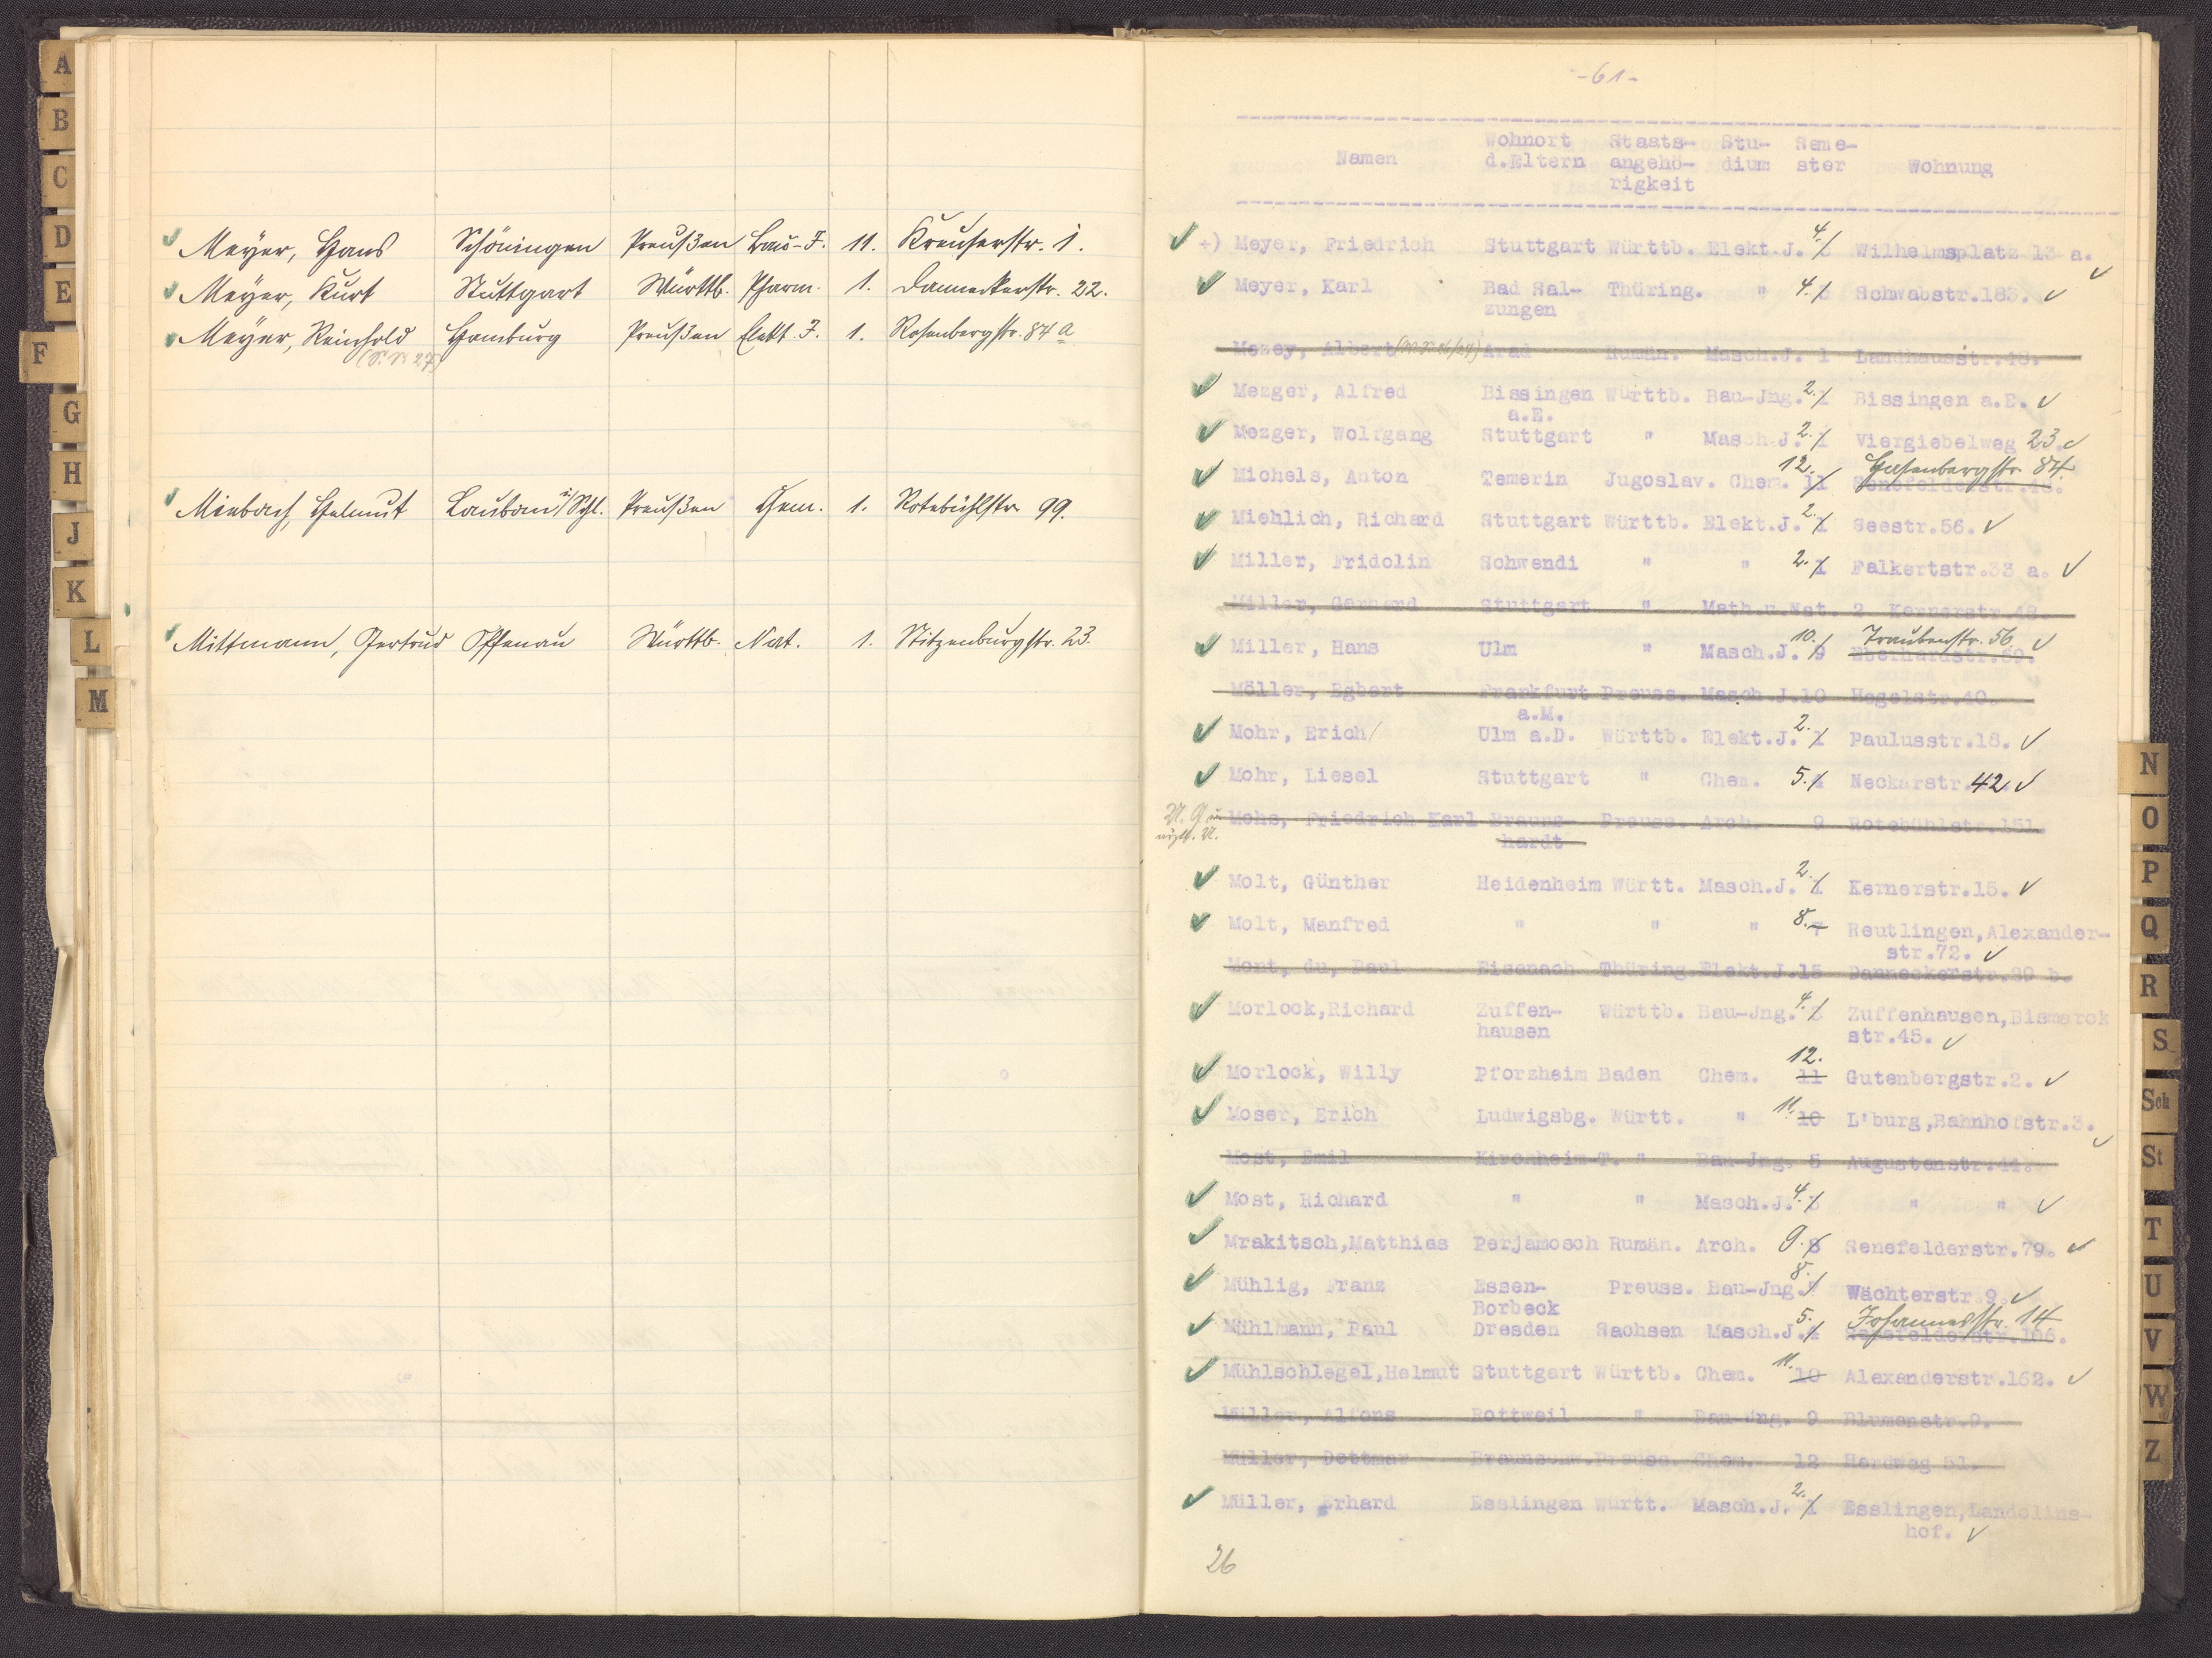 A
B
C
D
E
F
G
H
J
K
L
M
Meyer, Hans Schöningen Preußen Bau-J. 11. Kreuserstr. 1.
Meyer, Kurt Stuttgart Württb. Pharm. 1. Danneckerstr. 22.
Meyer, Reinhold Hamburg Preußen Elekt. J. 1. Rosenbergstr. 84 a
Mirbach, Helmut Lauban i/Schl. Preußen Chem. 1. Rotebühlstr. 99.
Mittmann, Gertrud Offenau Württb. Nat. 1. Stitzenburgstr. 23.
-61-
Namen Wohnort d.Eltern Staats-angehö-rigkeit Stu-dium Seme-ster Wohnung
+) Meyer, Friedrich Stuttgart Württb. Elekt.J. 4. 3 Wilhelmsplatz 13 a.
Meyer, Karl Bad Sal- Thüring. " 4. 3 Schwabstr.183.
zungen
Mezey, Albert Arad Rumän. Masch.J. 1 Landhausstr.48.
Mezger, Alfred Bissingen Württb. Bau-Jng. 2. 1 Bissingen a.E.
a.E.
Mezger, Wolfgang Stuttgart " Masch.J. 2. 1 Viergiebelweg 23.
Hasenbergstr. 84.
Michels, Anton Temerin Jugoslav. Chem. 12. 11 Senefelderstr.48.
Miehlich, Richard Stuttgart Württb. Elekt.J. 2. 1 Seestr.56.
Miller, Fridolin Schwendi " " 2. 1 Falkertstr.33 a.
Miller, Gerhard Stuttgart " Math.u.Nat. 2 Kernerstr.48.
Traubenstr. 56.
Miller, Hans Ulm " Masch.J. 10. 9 Eberhardstr.69.
Möller, Egbert Frankfurt Preuss. Masch.J.10 Hegelstr.40.
a.M.
Mohr, Erich Ulm a.D. Württb. Elekt.J. 2. 1 Paulusstr.18.
Mohr, Liesel Stuttgart " Chem. 5. 4 Neckarstr.42.
Mohs, Friedrich Karl Brauns- Preuss. Arch. 9 Rotebühlstr.151.
hardt
Molt, Günther Heidenheim Württ. Masch.J. 2. 1 Kernerstr.15.
Molt, Manfred " " " 8. 7 Reutlingen,Alexander-
str.72.
Mont, du, Paul Eisenach Thüring.Elekt.J.15 Danneckerstr.39 b.
Morlock,Richard Zuffen- Württb. Bau-Jng. 4. 3 Zuffenhausen,Bismarck
hausen str.45.
Morlock, Willy Pforzheim Baden Chem. 12. 11 Gutenbergstr.2.
Moser, Erich Ludwigsbg. Württ. " 11. 10 L'burg,Bahnhofstr.3.
Most, Emil Kirchheim-T. " Bau-Jng. 5 Augustenstr.44.
Most, Richard " " Masch.J. 4. 3 " "
Mrakitsch,Matthias Perjamosch Rumän. Arch. 9. 8 Senefelderstr.79.
Mühlig, Franz Essen- Preuss. Bau-Jng. 8. 7 Wächterstr.9.
Borbeck
Johannesstr. 14
Mühlmann, Paul Dresden Sachsen Masch.J. 5. 4 Senefelderstr.106.
Mühlschlegel,Helmut Stuttgart Württb. Chem. 11. 10 Alexanderstr.162.
Müller, Alfons Rottweil " Bau-Jng. 9 Blumenstr.9.
Müller, Dettmar Braunschw.Preuss. Chem. 12 Herdweg 51.
Müller, Erhard Esslingen Württ. Masch.J. 2. 1 Esslingen,Landolins-
hof.
26
N
O
P
Q
R
S
Sch
St
T
U
V
W
Z